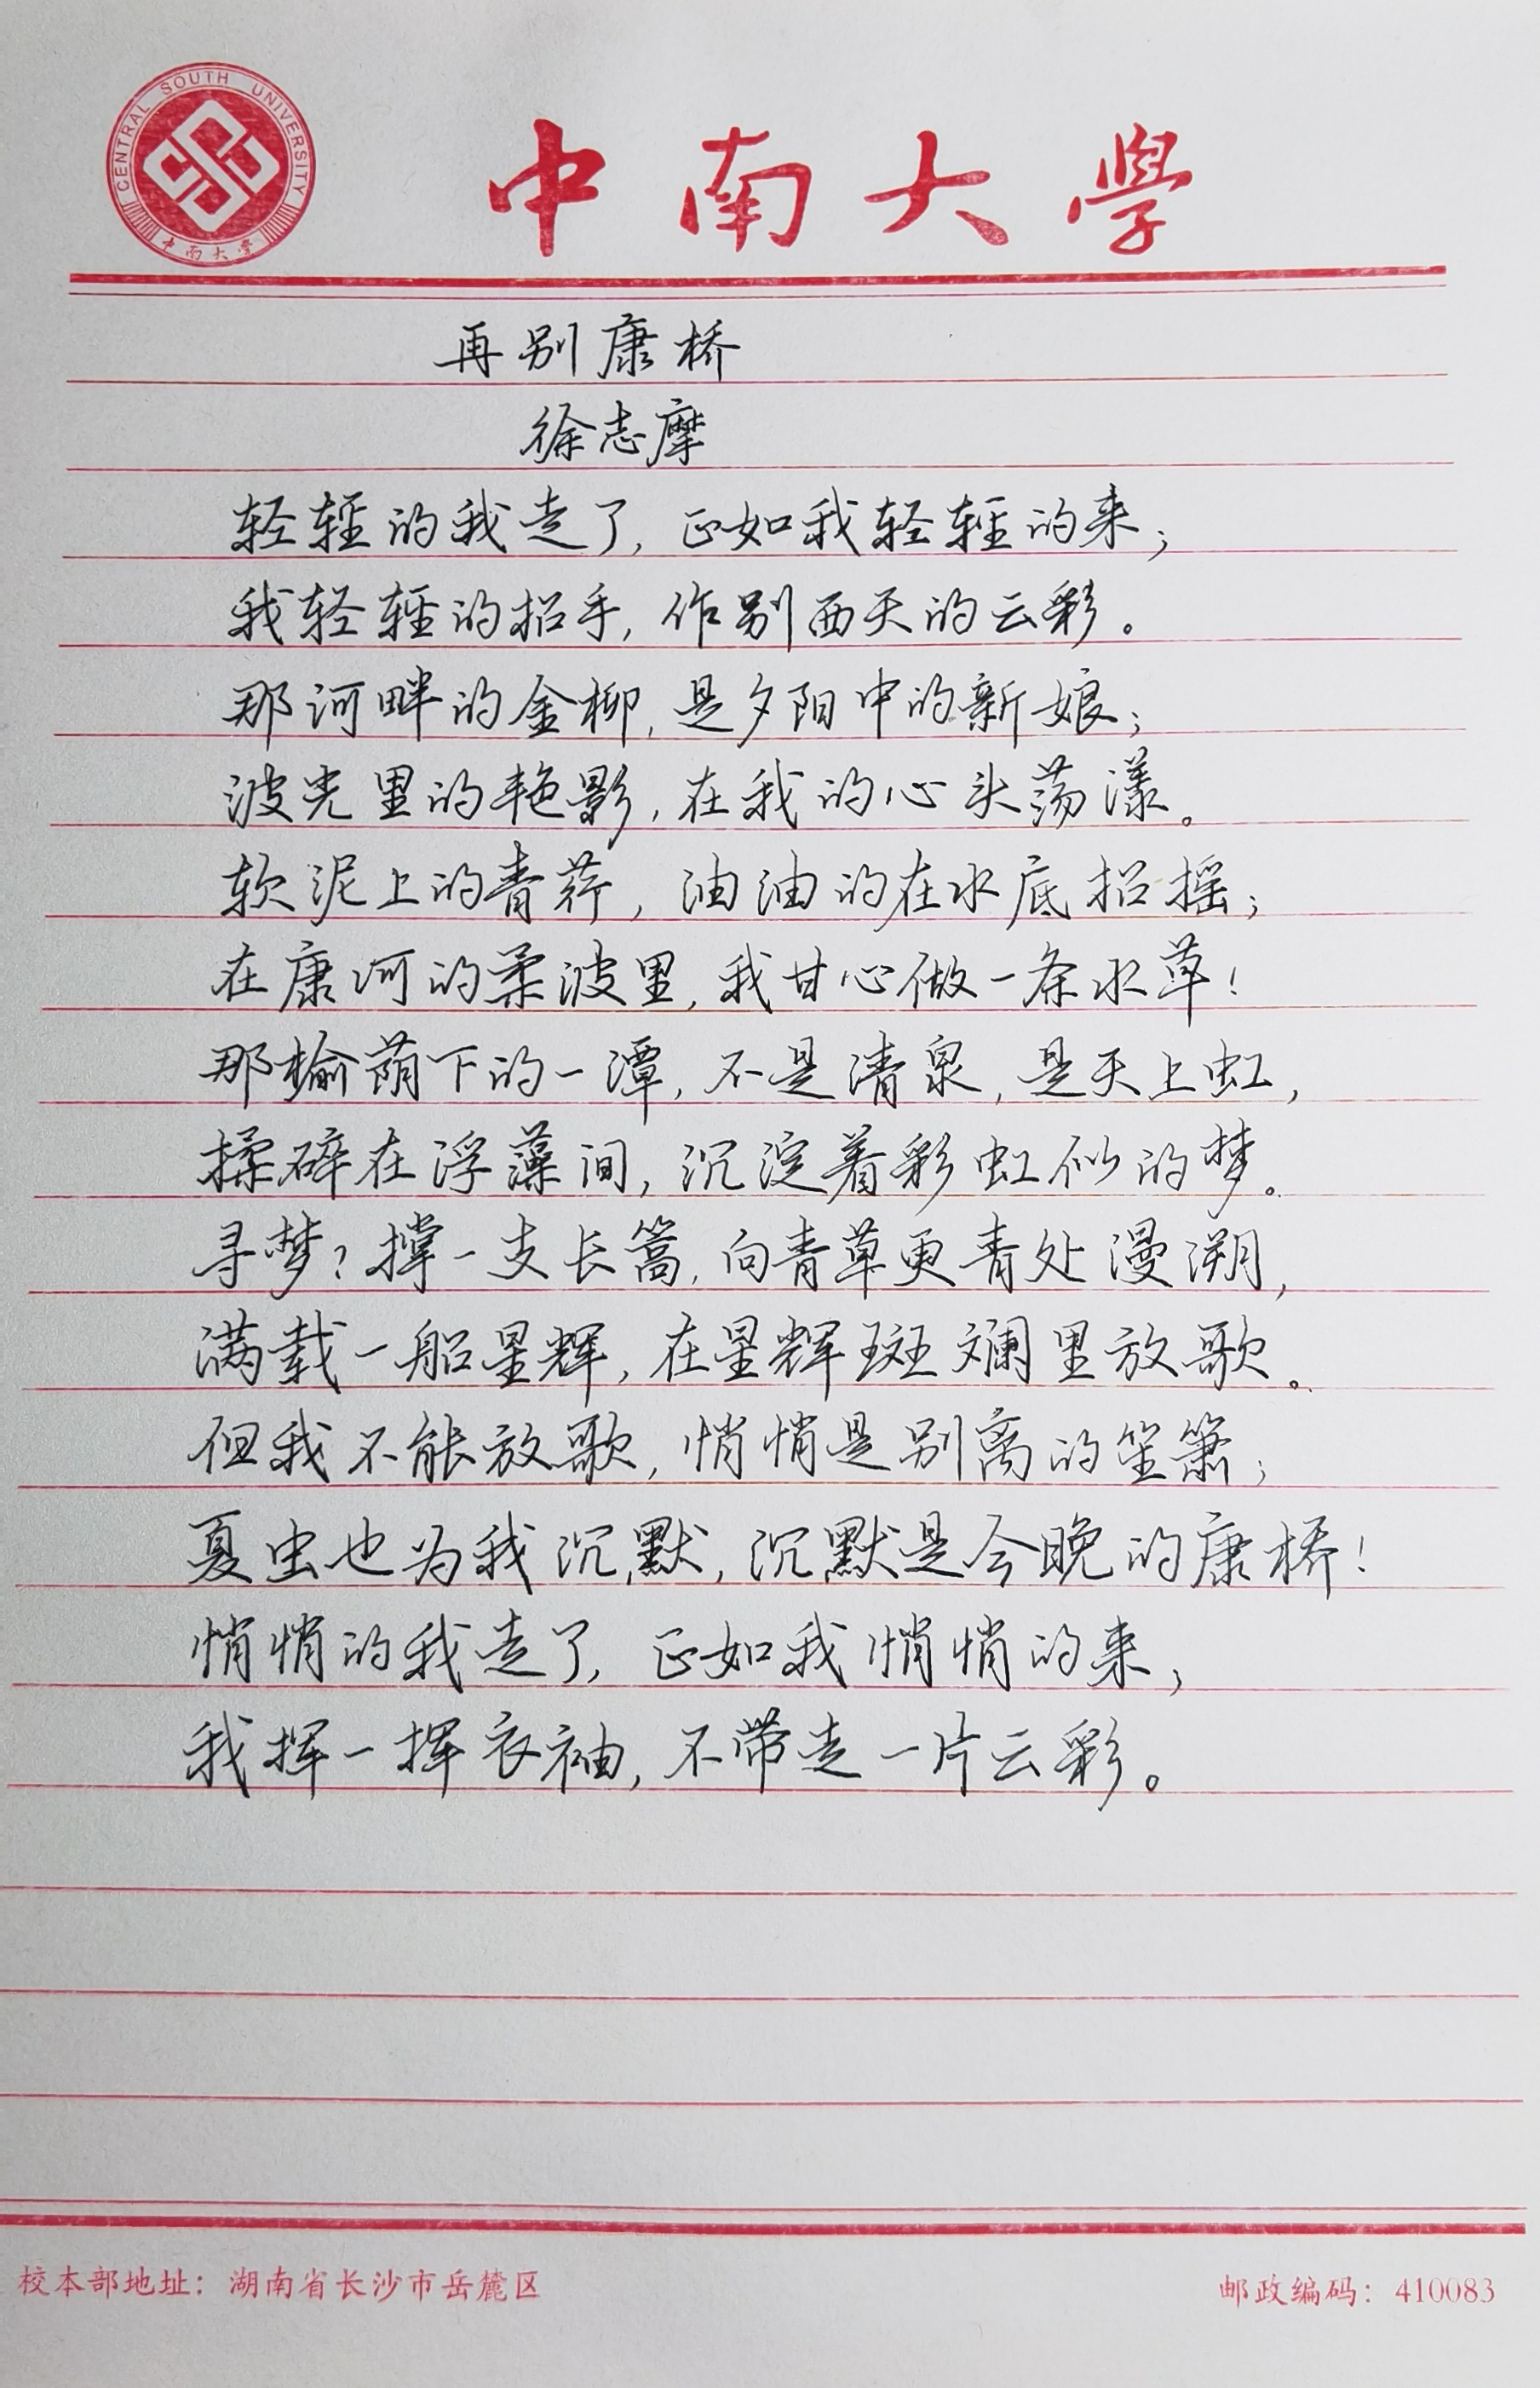 CENTRAL SOUTH UNIVERSITY
中南大学
中南大學
再别康桥
徐志摩
轻轻的我走了，正如我轻轻的来；
我轻轻的招手，作别西天的云彩。
那河畔的金柳，是夕阳中的新娘；
波光里的艳影，在我的心头荡漾。
软泥上的青荇，油油的在水底招摇；
在康河的柔波里，我甘心做一条水草！
那榆荫下的一潭，不是清泉，是天上虹，
揉碎在浮藻间，沉淀着彩虹似的梦。
寻梦？撑一支长篙，向青草更青处漫溯，
满载一船星辉，在星辉斑斓里放歌。
但我不能放歌，悄悄是别离的笙箫；
夏虫也为我沉默，沉默是今晚的康桥！
悄悄的我走了，正如我悄悄的来；
我挥一挥衣袖，不带走一片云彩。
校本部地址：湖南省长沙市岳麓区 邮政编码：410083